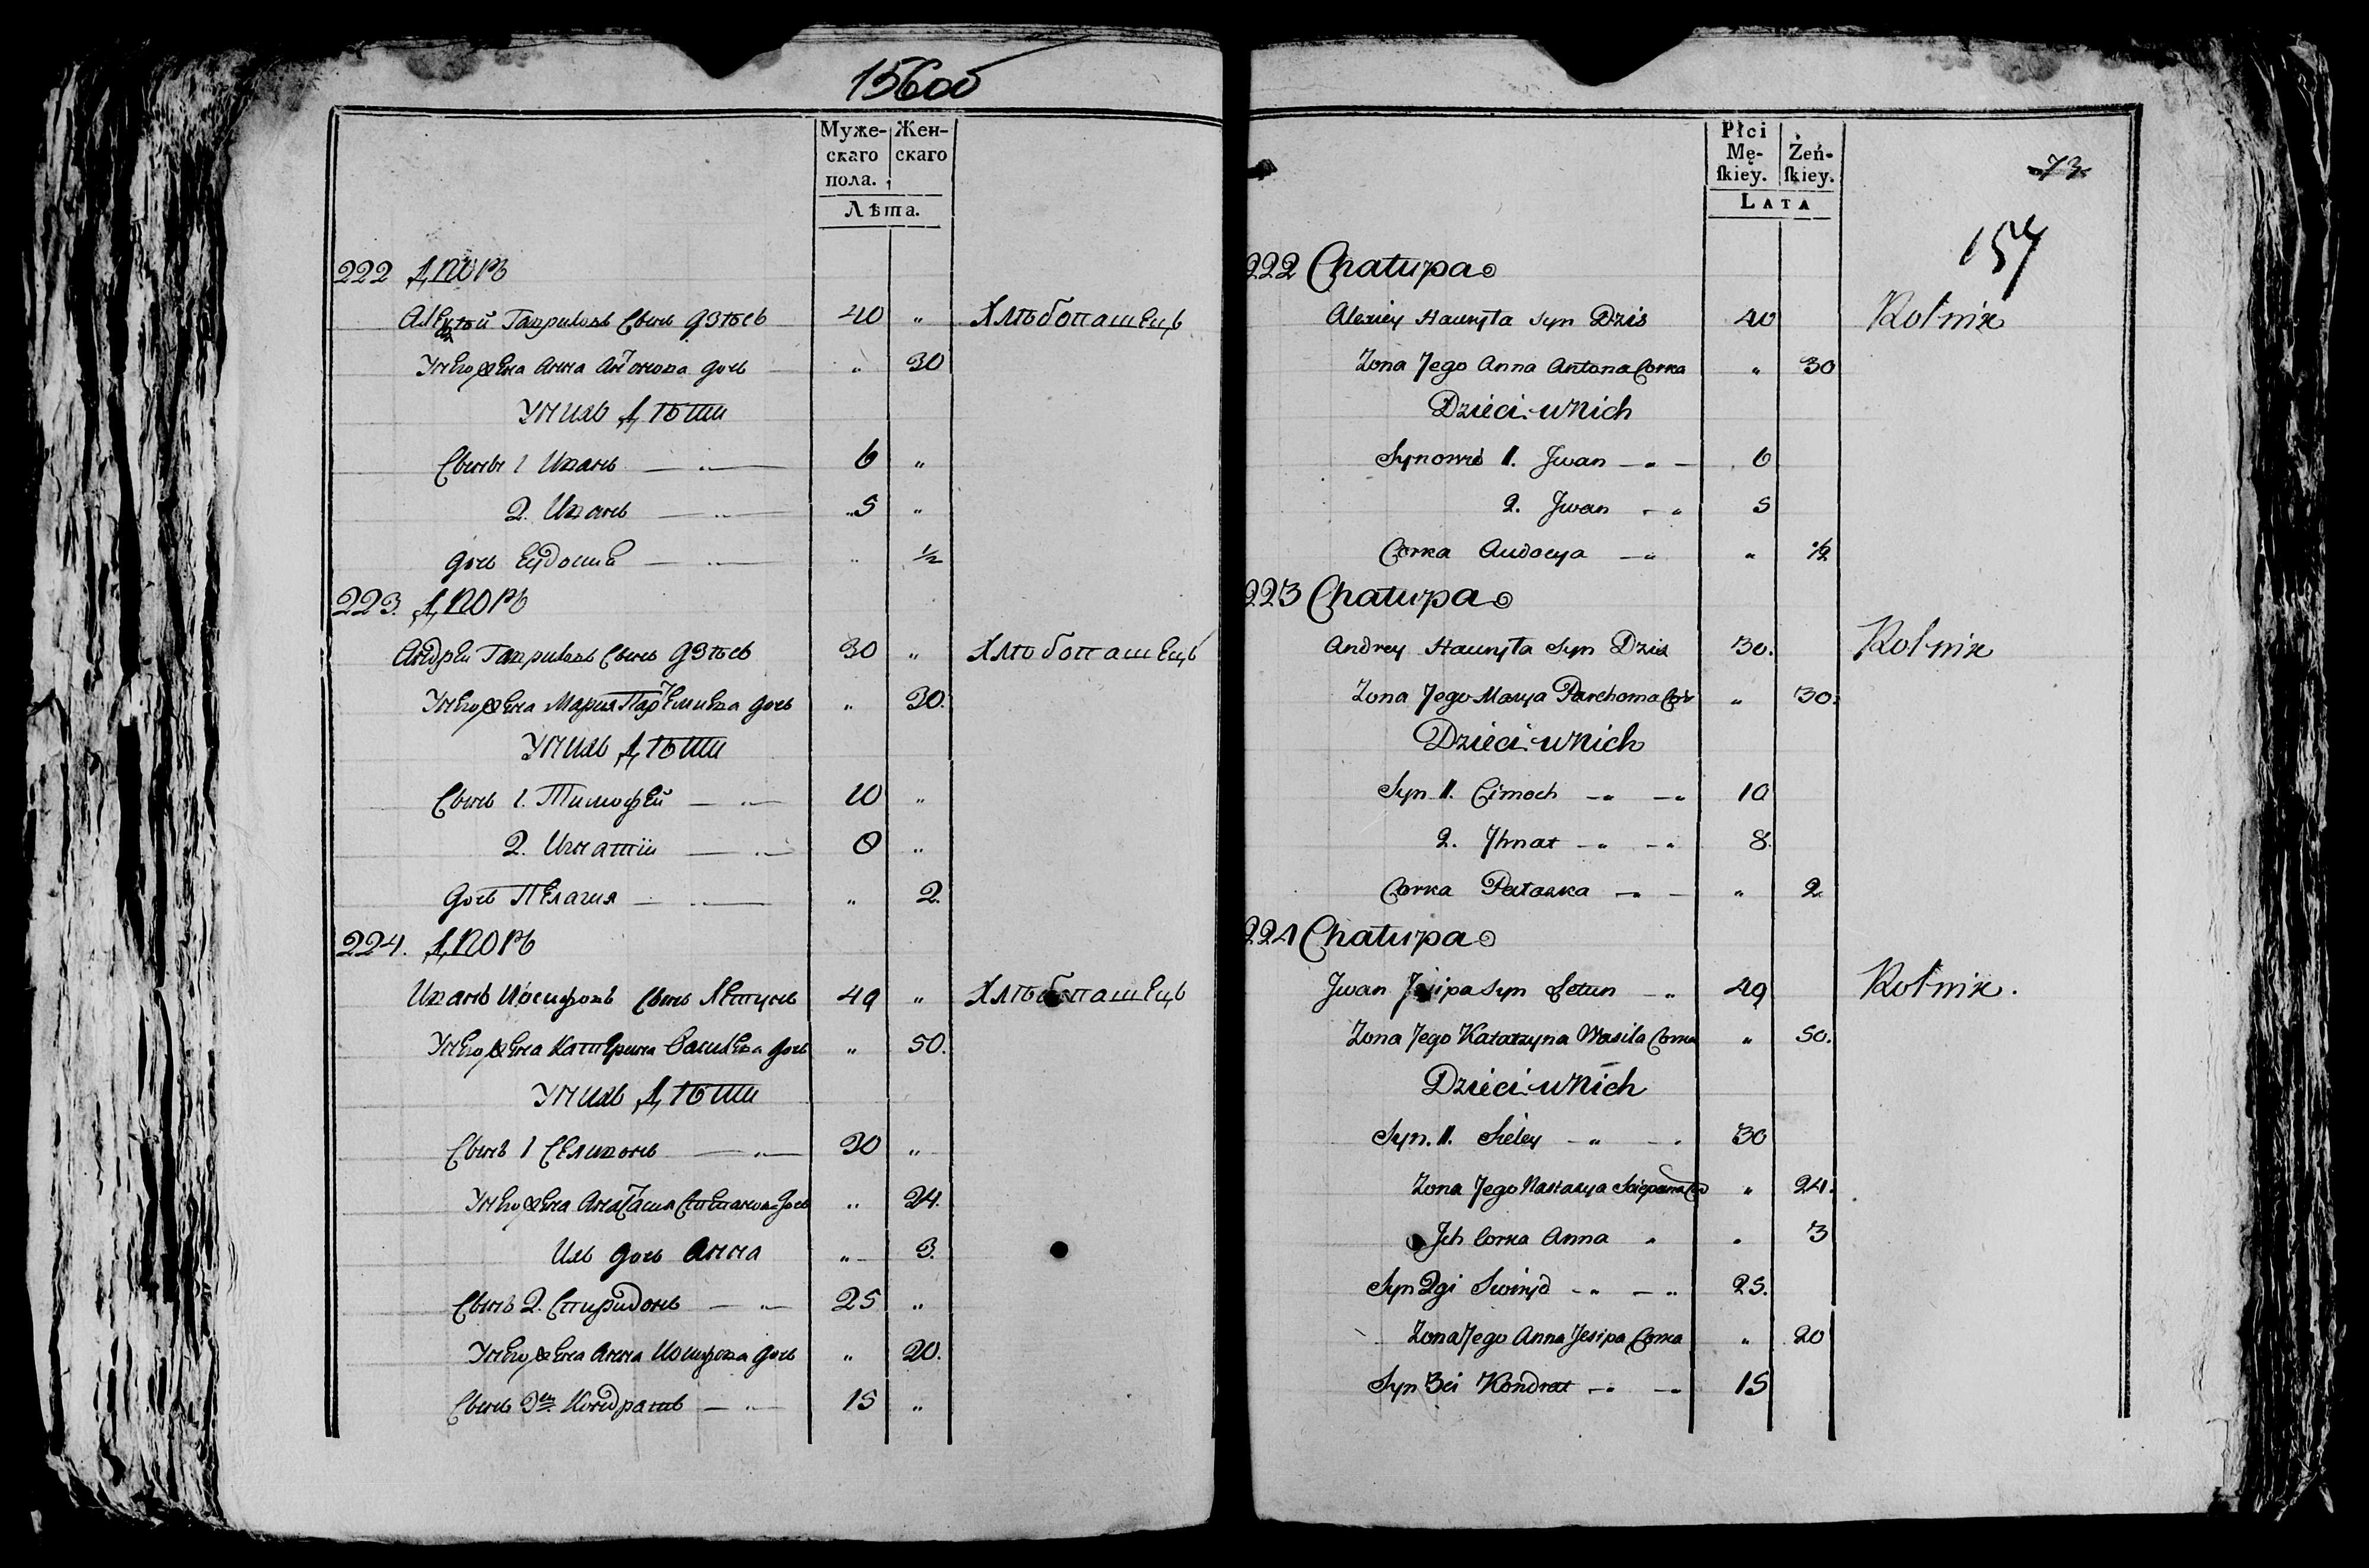 156об
Муже- Жен-
скаго скаго
пола.
Лѣта.
222 Дворъ
Алексѣй Гавриловъ Сынъ Дзѣсь 40 „ Хлѣбопашецъ
У него жена Анна Антонова дочь „ 30
У нихъ Дѣти
Сыновья 1 Иванъ 6 „
2. Иванъ 5 „
дочь Евдокия „ ½
223. Дворъ
Андрей Гавриловъ Сынъ Дзѣсь 30 „ Хлѣбопашецъ
У него жена Мария дочь „ 30.
У нихъ Дѣти
Сынъ 1. Тимофей 10 „
2. Игнатій 8 „
Дочь Пелагия „ 2.
224. Дворъ
Иванъ Иосифовъ Сынъ Летунъ 49 „ Хлѣбопашецъ
У него жена Катерина Василева дочь „ 50.
У нихъ Дѣти
Сынъ 1 Селивонъ 30 „
У него жена Анастасия Степанова дочь „ 24.
Ихъ дочь Анна „ 3.
Сынъ 2. Спиридонъ 25 „
У него жена Анна Иосифова дочь „ 20.
Сынъ 3й Кондратъ 15 „
Płci
Mę- Żeń-
ſkiey. ſkiey.
LATA
73
157
222 Chałupa
Alexiey Hauryła Syn Dzis 40 Rolnik
Zona Jego Anna Antona Corka „ 30
Dzieci u Nich
Synowie 1. Jwan 6
2. Jwan 5
Corka Audocya „ ½
223 Chałupa
Andrey Hauryła Syn Dzis 30. Rolnik
Zona Jego Marya Parchoma Cor „ 30.
Dzieci u Nich
Syn 1. Cimoch 10
2. Jhnat 8.
Corka Pałaska „ 2
224 Chałupa
Jwan Jesipa Syn Letun 49 Rolnik.
Zona Jego Katarzyna Wasila Corka „ 50.
Dzieci u Nich
Syn. 1. 30
Zona Jego Nastasya „ 24.
Jch Corka Anna „ 3
Syn 2gi Swiryd 25.
Zona Jego Anna Jesipa Corka „ 20
Syn 3ci Kondrat 15